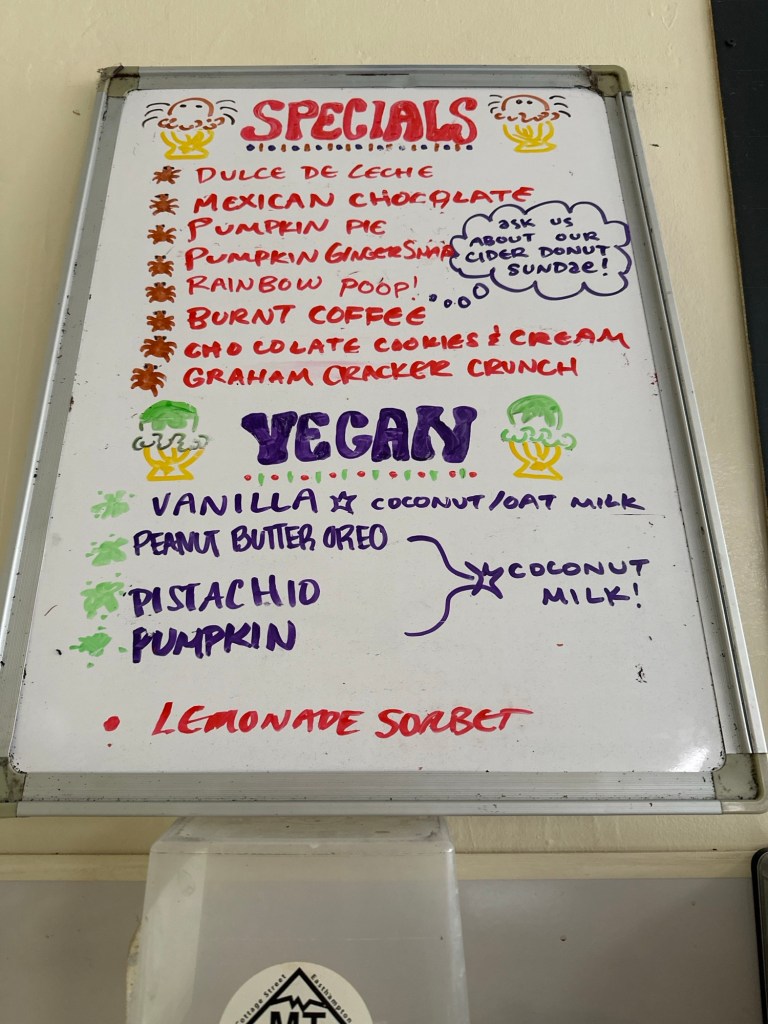 SPECIALS
DULCE DE LECHE
MEXICAN CHOCOLATE
PUMPKIN PIE
PUMPKIN GINGERSNAP
RAINBOW POOP!
BURNT COFFEE
CHOCOLATE COOKIES & CREAM
GRAHAM CRACKER CRUNCH
ASK US
ABOUT OUR
CIDER DONUT
SUNDAE!
VEGAN
VANILLA ☆ COCONUT/OAT MILK
PEANUT BUTTER OREO
PISTACHIO
PUMPKIN
☆ COCONUT
MILK!
• LEMONADE SORBET
Cottage Street
Easthampton
MT